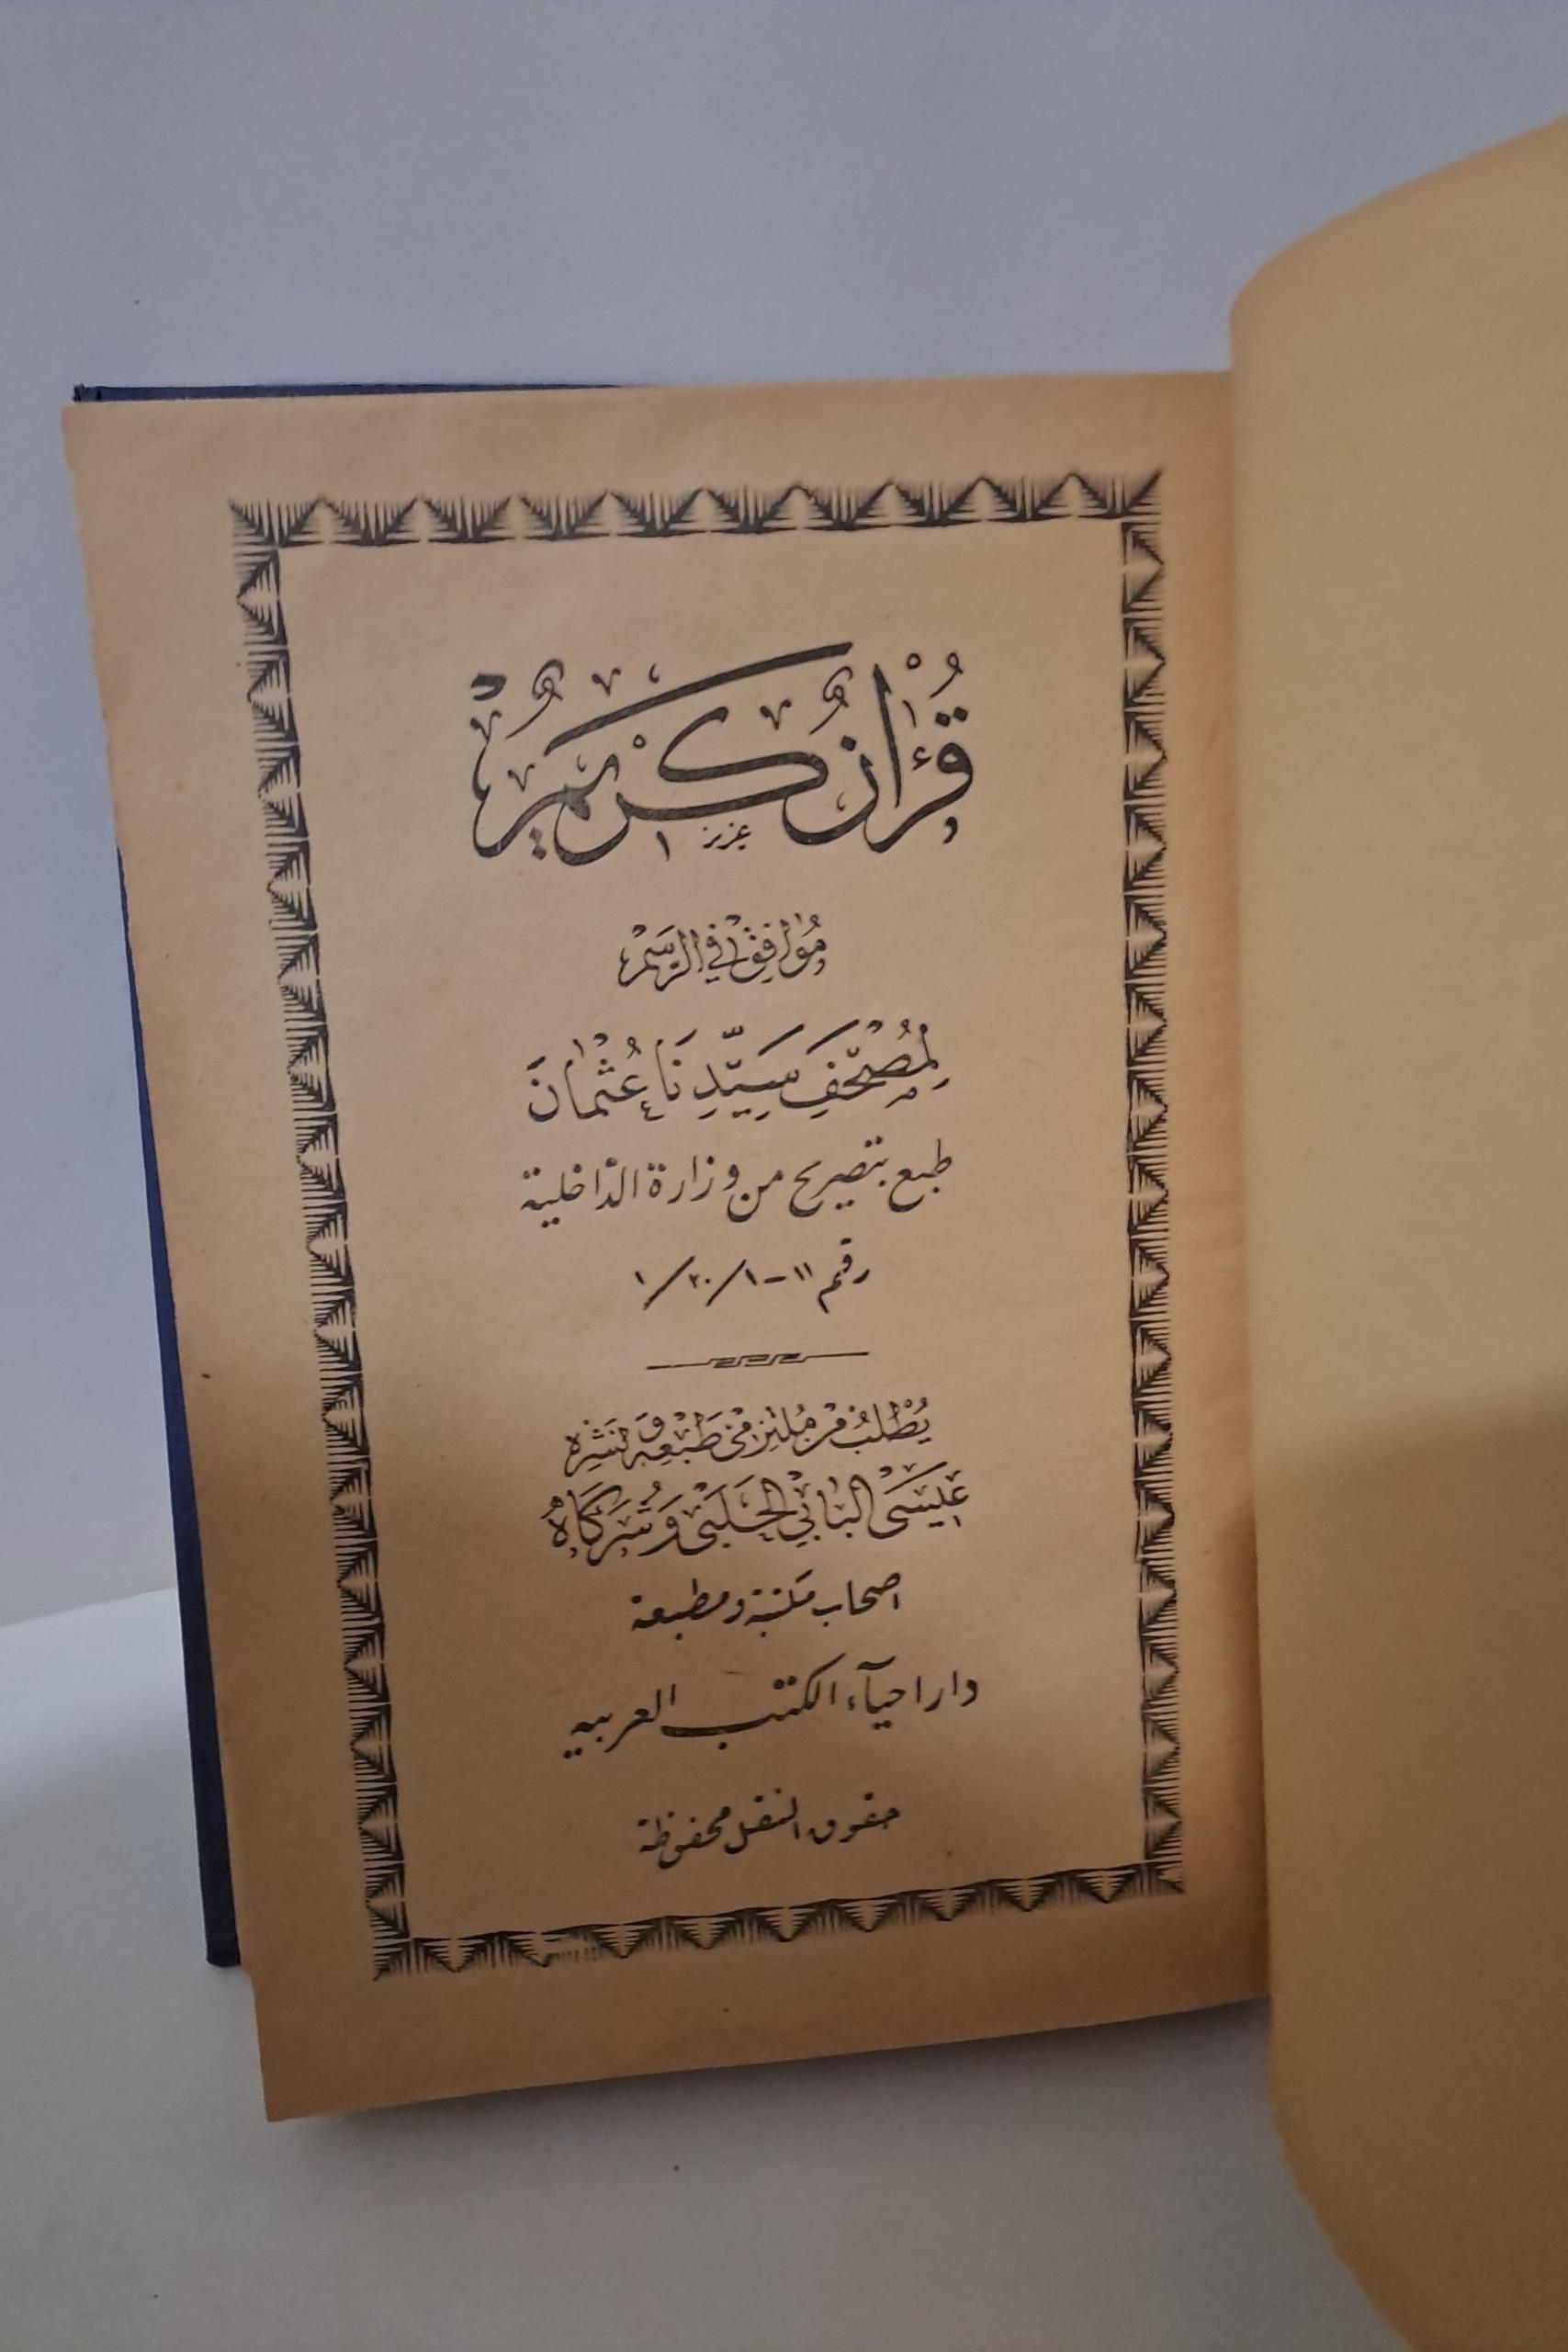 قُرْآنٌ كَرِيمٌ
عزيز
مُوَافِقٌ فِي الرَّسْمِ
لِمُصْحَفِ سَيِّدِنَا عُثْمَانَ
طبع بتصريح من وزارة الداخلية
رقم ١١-١/٢٠/١
يُطْلَبُ مِنْ مُلْتَزِمَيْ طَبْعِهِ وَنَشْرِهِ
عِيسَى الْبَابِي الْحَلَبِي وَشُرَكَاهُ
اصحاب مكتبة ومطبعة
دار احيآء الكتب العربيه
حقوق النقل محفوظة